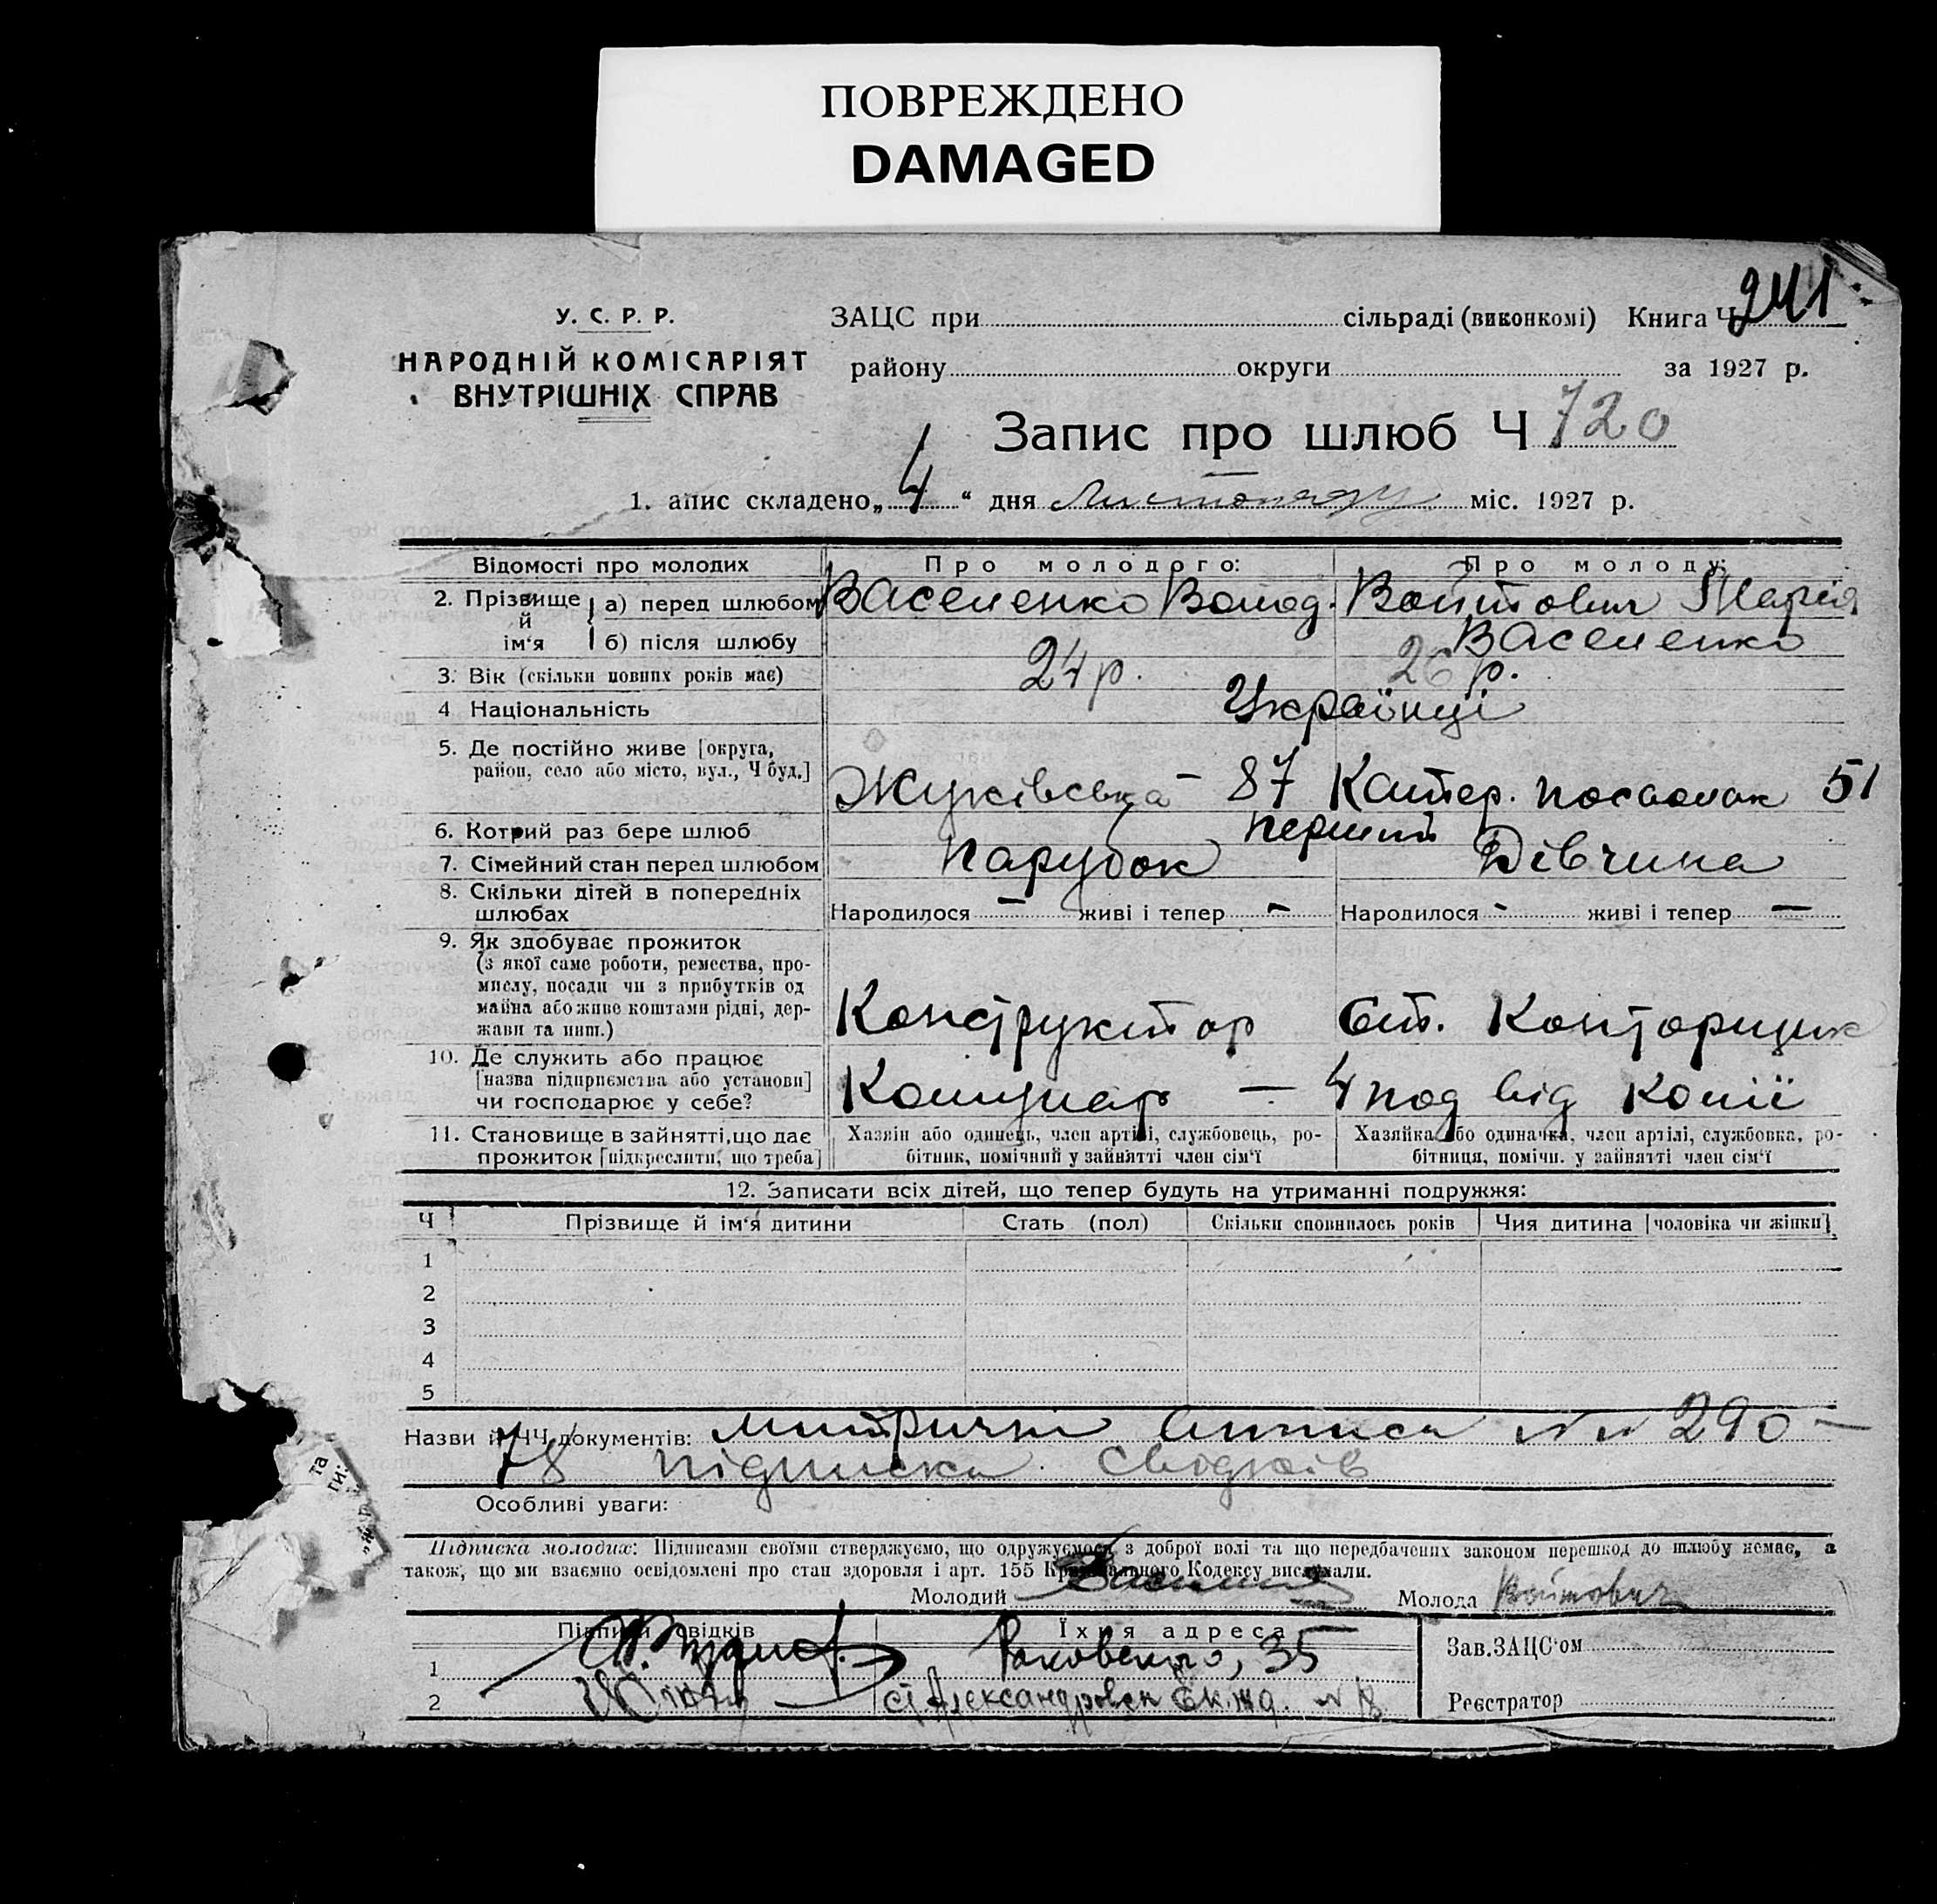 ПОВРЕЖДЕНО
DAMAGED
У. С. Р. Р.
НАРОДНІЙ КОМІСАРІЯТ
ВНУТРІШНІХ СПРАВ
ЗАЦС при сільраді (виконкомі) Книга Ч 241
району округи за 1927 р.
Запис про шлюб Ч 720
1. апис складено „4“ дня Листопаду міс. 1927 р.
Відомості про молодих Про молодого: Про молоду:
2. Прізвище й ім'я а) перед шлюбом Василенко Волод. Войтович Марія
б) після шлюбу Василенко
3. Вік (скільки повних років має) 24 р. 26 р.
4 Національність Українці
5. Де постійно живе [округа, район, село або місто, вул., Ч буд.] Жуківська - 87 Катер. посьолок 51
6. Котрий раз бере шлюб перший
7. Сімейний стан перед шлюбом Парубок Дівчина
8. Скільки дітей в попередніх шлюбах Народилося - живі і тепер - Народилося - живі і тепер -
9. Як здобуває прожиток
(з якої саме роботи, ремества, про-
мислу, посади чи з прибутків од
майна або живе коштами рідні, дер-
жави та инш.) Конструктор Ст. Конторщик
10. Де служить або працює
[назва підприємства або установи]
чи господарює у себе? Комунар - 4 под від
11. Становище в зайнятті, що дає
прожиток [підкреслити, що треба]
Хазяїн або одинець, член артілі, службовець, ро-
бітник, помічний у зайнятті член сім'ї
Хазяйка або одиначка, член артілі, службовка, ро-
бітниця, помічн. у зайнятті член сім'ї
12. Записати всіх дітей, що тепер будуть на утриманні подружжя:
Ч Прізвище й ім'я дитини Стать (пол) Скільки сповнилось років Чия дитина [чоловіка чи жінки]
1
2
3
4
5
Назви й ЧЧ документів: Метричні виписи NN 290 -
78 підписка свідків
та
ги:
Особливі уваги:
Підписка молодих: Підписами своїми стверджуємо, що одружуємося з доброї волі та що передбачених законом перешкод до шлюбу немає, а
також, що ми взаємно освідомлені про стан здоровля і арт. 155 Кримінального Кодексу вислухали.
Молодий Молода Войтович
Підписи свідків Їхня адреса
1 Раковського, 35
2 ст Александровск Ек. жд. N
Зав. ЗАЦС'ом
Реєстратор